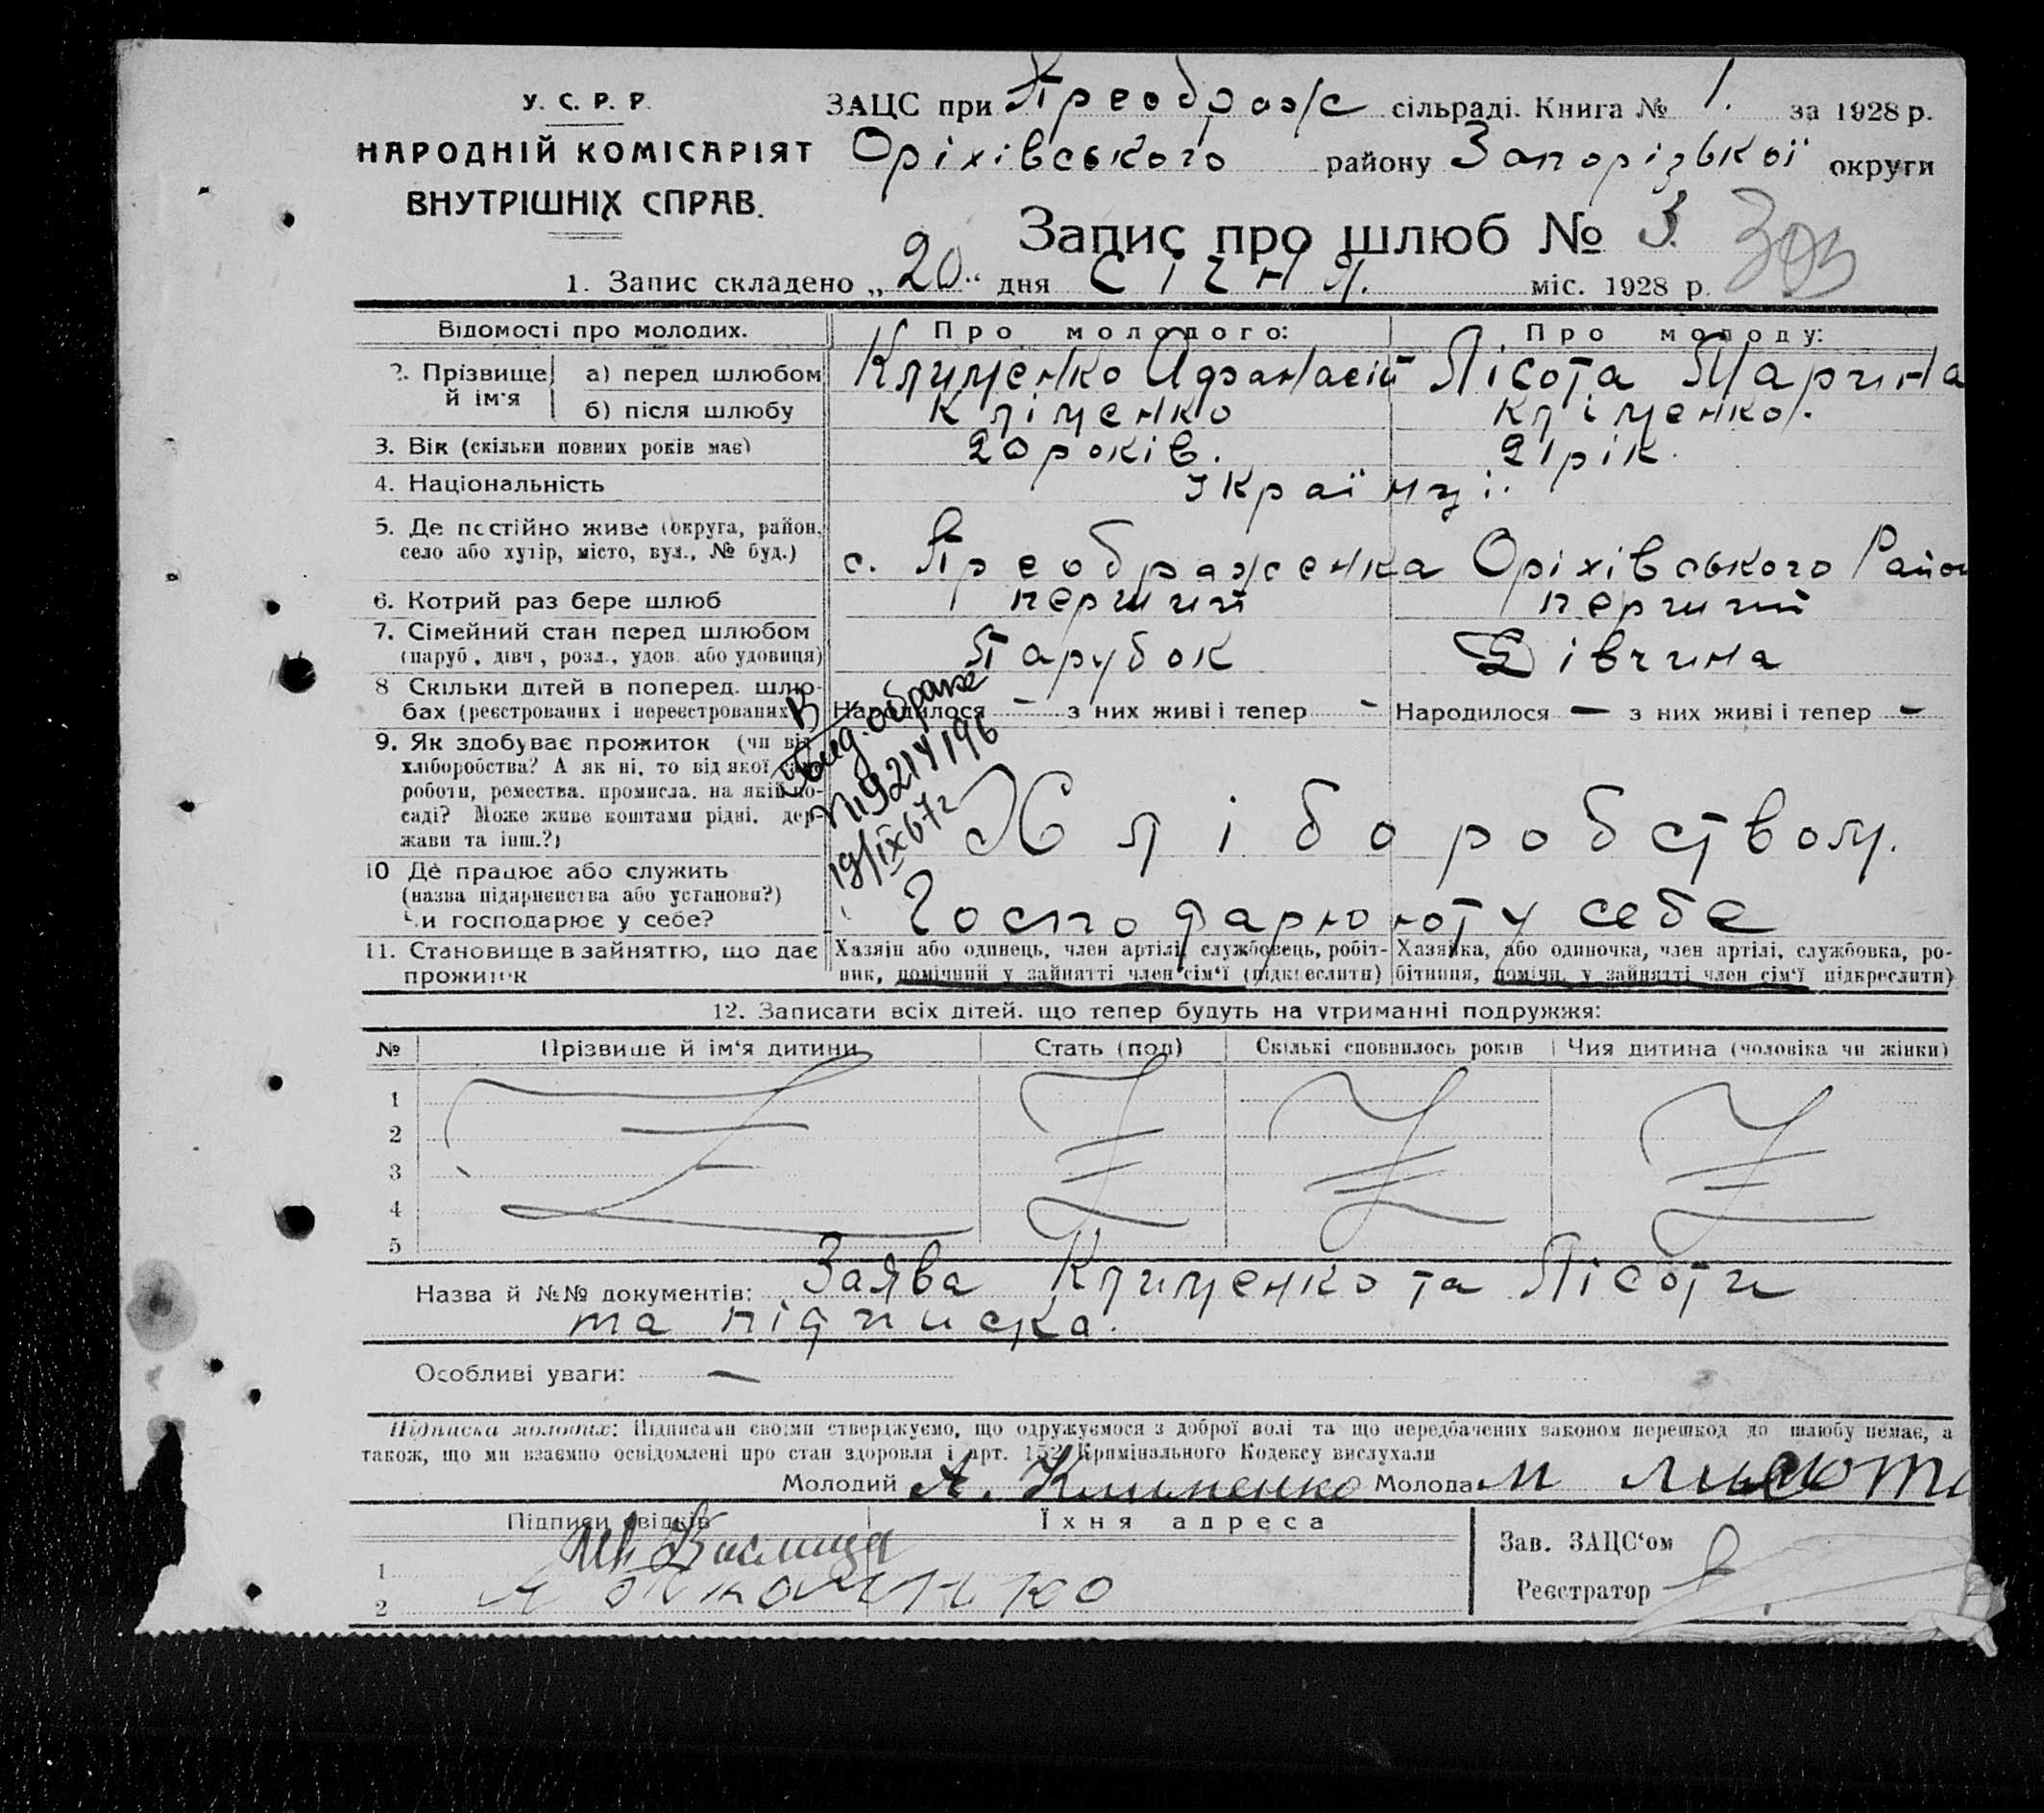 У. С. Р. Р.
НАРОДНІЙ КОМІСАРІЯТ
ВНУТРІШНІХ СПРАВ.
ЗАЦС при Преображ сільраді. Книга № 1. за 1928 р.
Оріхівського району Запорізької округи
Запис про шлюб № 3.
1. Запис складено „20“ дня Січня. міс. 1928 р.
Відомості про молодих. Про молодого: Про молоду:
2. Прізвище й ім'я а) перед шлюбом Клименко Афанасій Лісота Марина
б) після шлюбу Кліменко Кліменко.
3. Вік (скільки повних років має) 20 років. 21 рік.
4. Національність Українці.
5. Де постійно живе (округа, район, село або хутір, місто, вул., № буд.) с. Преображенка Оріхівського Район
6. Котрий раз бере шлюб перший перший
7. Сімейний стан перед шлюбом (паруб., дівч., розл., удов. або удовиця) Парубок Дівчина
8 Скільки дітей в поперед. шлюбах (реєстрованих і нереєстрованих) Народилося – з них живі і тепер – Народилося – з них живі і тепер –
9. Як здобуває прожиток (чи від хліборобства? А як ні, то від якої роботи, ремества, промисла, на якій посаді? Може живе коштами рідні, держави та інш.?) Хліборобством.
В
19/IX 67 г
10 Де працює або служить (назва підприємства або установи?) Чи господарює у себе? Господарюють у себе
11. Становище в зайняттю, що дає прожиток
Хазяїн або одинець, член артілі, службовець, робітник, помічний у зайнятті член сім'ї (підкреслити) Хазяйка, або одиночка, член артілі, службовка, робітниця, помічн. у зайнятті член сім'ї підкреслити)
12. Записати всіх дітей, що тепер будуть на утриманні подружжя:
№ Прізвище й ім'я дитини Стать (пол) Скількі сповнилось років Чия дитина (чоловіка чи жінки)
1
2
3
4
5
Назва й №№ документів: Заява Клименко та Лісоти
та підписка.
Особливі уваги: —
Підписка молодих: Підписами своїми стверджуємо, що одружуємося з доброї волі та що передбачених законом перешкод до шлюбу немає, а
також, що ми взаємно освідомлені про стан здоровля і арт. 152 Кримінального Кодексу вислухали
Молодий А. Клименко Молода М лисота
Підписи свідків Їхня адреса
1
2
Зав. ЗАЦС'ом
Реєстратор